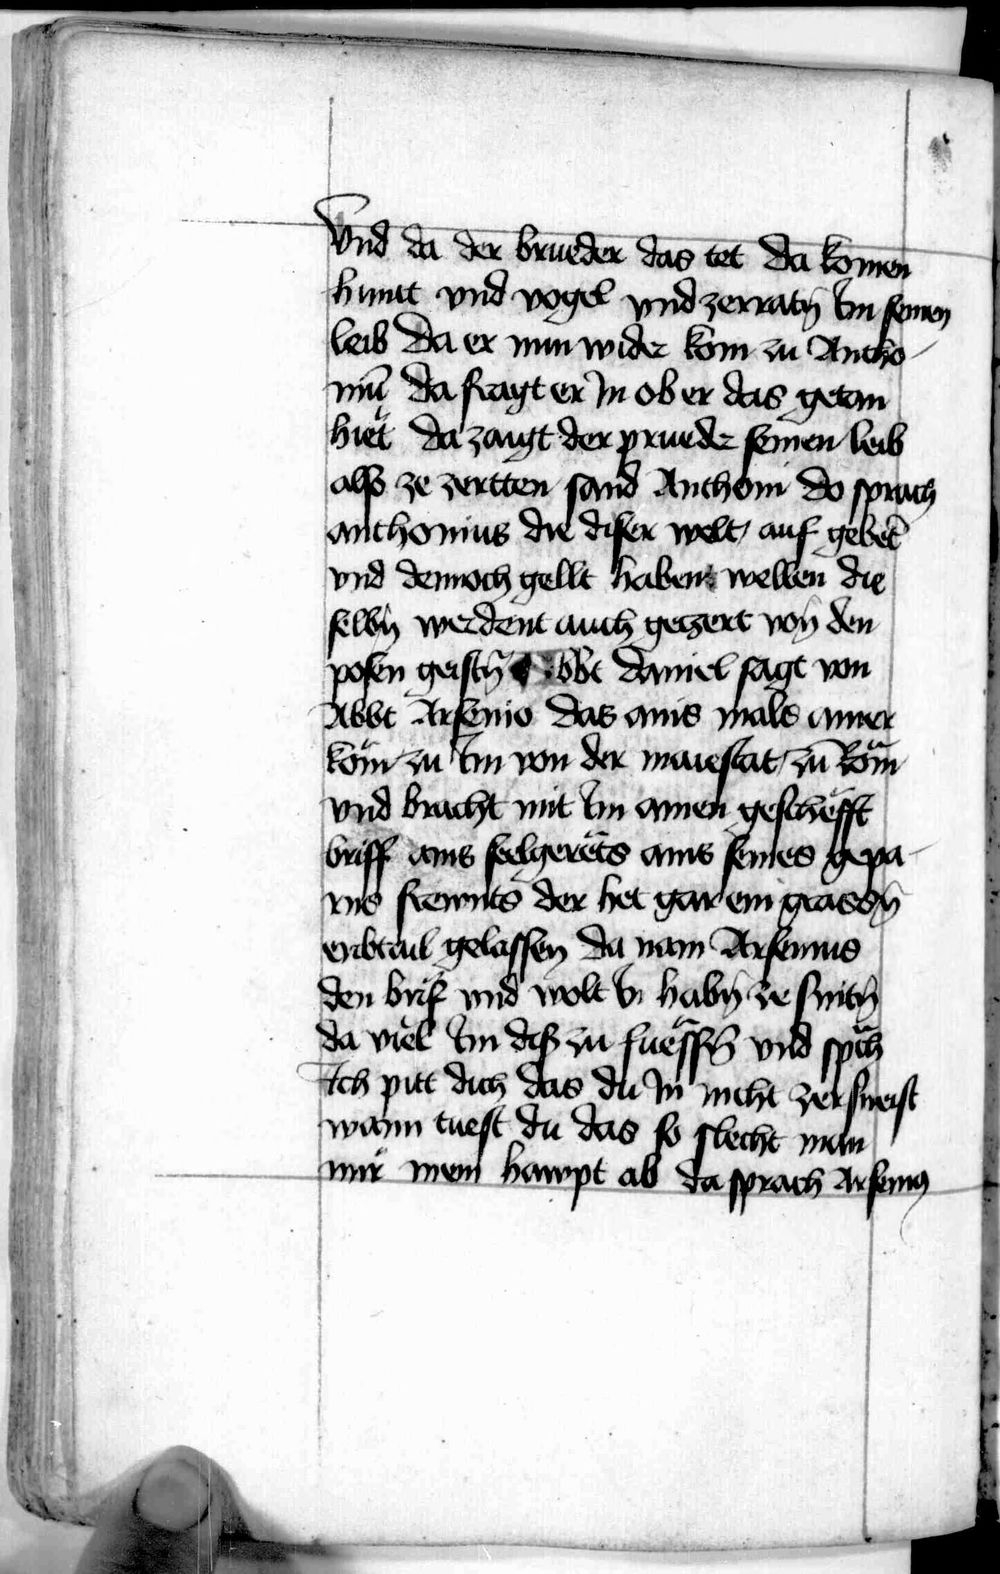 Vnd da der brueder das tet da komen
hunt vnd vogel vnd zerratn̄ Im seinen
leib Da er nun wider kom zu Antho-
niū da fragt er In ob er das getan
hiet da zaigt der prueder seinen leib
also ze zertten sand Anthoni do sprach
anthonius die diser welt auf gebet̄
vnd dennoch gellt haben wellen die
selbn̄ werdent auch geczert von̄ den
posen geistn̄ Abbt Daniel sagt von
Abbt Arsenio das ains mals ainer
köm zu Im von der maiestat zu Röm
vnd bracht mit Im ainen geschëfft
briff ains seelgeräts ains seines gepa-
rns frewnts der het gar ein grassn̄
erbtail gelassen da nam Arsenius
den brif vnd wolt In habn̄ ze snitn̄
da viel Im diser zu füessn̄ vnd sp̄ch
Ich pitt dich das du In nicht zersneist
wann tuest du das so slecht man
mir mein hawpt ab da sprach Arseniꝰ